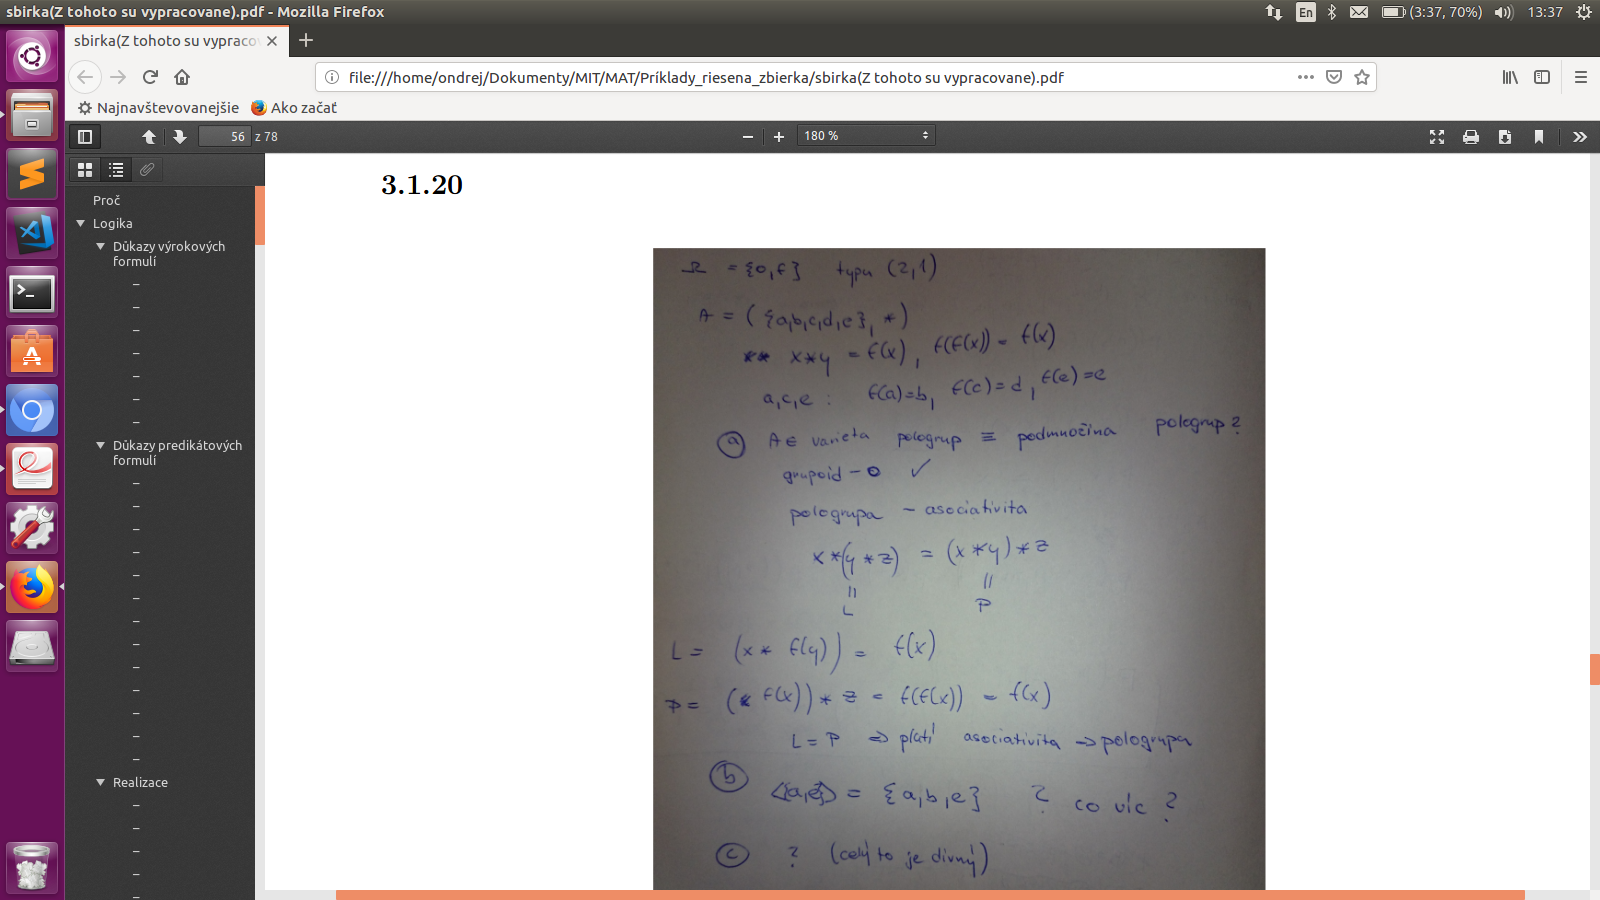 sbirka(Z tohoto su vypracovane).pdf - Mozilla Firefox
En
(3:37, 70%)
13:37
sbirka(Z tohoto su vypraco
file:///home/ondrej/Dokumenty/MIT/MAT/Príklady_riesena_zbierka/sbirka(Z tohoto su vypracovane).pdf
Najnavštevovanejšie
Ako začať
56 z 78
180 %
Proč
Logika
Důkazy výrokových
formulí
Důkazy predikátových
formulí
Realizace
3.1.20
Ω = {o, f} typu (2,1)
A = ({a,b,c,d,e}, *)
x*y = f(x), f(f(x)) = f(x)
a,c,e : f(a)=b, f(c)=d, f(e)=e
(a) A ∈ varieta pologrup ≡ podmnožina pologrup?
grupoid - o ✓
pologrupa - asociativita
x*(y*z) = (x*y)*z
= =
L P
L = (x * f(y)) = f(x)
P = (f(x)) * z = f(f(x)) = f(x)
L = P ⇒ platí asociativita → pologrupa
(b) <{a,e}> = {a,b,e} ? co víc ?
(c) ? (celý to je divný)